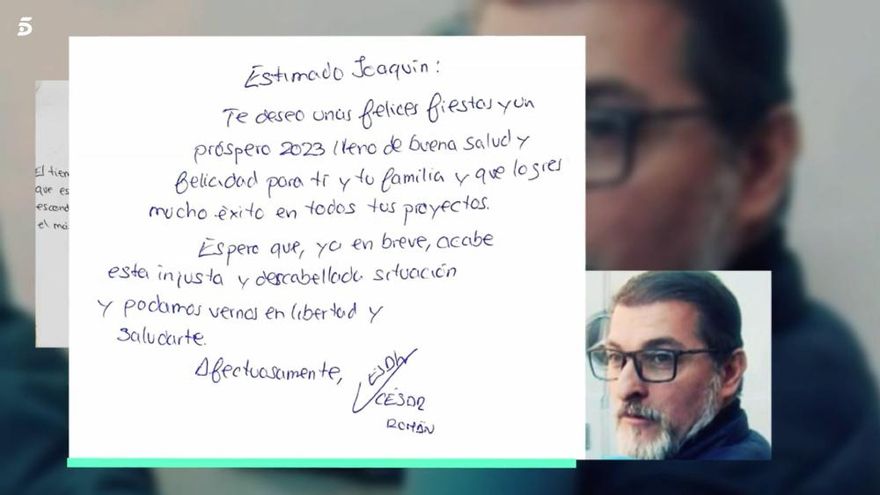 5
Estimado Joaquín:
Te deseo unas felices fiestas y un
próspero 2023 lleno de buena salud y
felicidad para ti y tu familia y que logres
mucho éxito en todos tus proyectos.
Espero que, ya en breve, acabe
esta injusta y descabellada situación
y podamos vernos en libertad y
saludarte.
Afectuasamente,
CÉSAR
ROMÁN
El tiem
que es
escond
el má